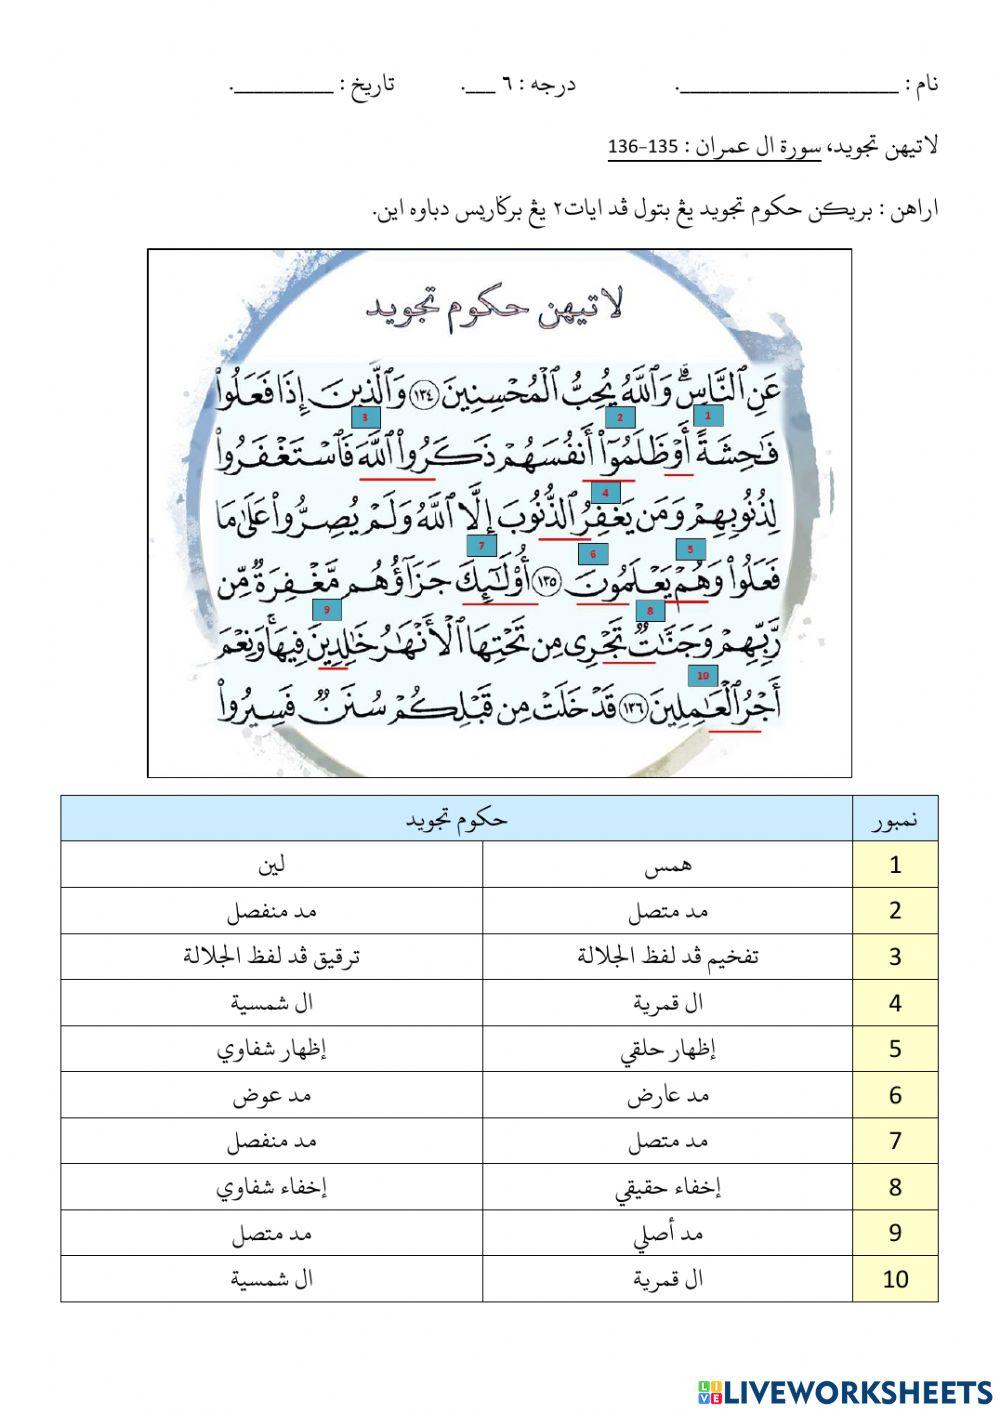 نام : ______________________. درجه : ٦ ___. تاريخ : __________.
لاتيهن تجويد، سورة ال عمران : 135-136
اراهن : بريكن حكوم تجويد يڠ بتول ڤد ايات٢ يڠ برݢاريس دباوه اين.
لاتيهن حكوم تجويد
عَنِ ٱلنَّاسِۗ وَٱللَّهُ يُحِبُّ ٱلْمُحْسِنِينَ ١٣٤ وَٱلَّذِينَ إِذَا فَعَلُوا۟
3 2 1
فَـٰحِشَةً أَوْ ظَلَمُوٓا۟ أَنفُسَهُمْ ذَكَرُوا۟ ٱللَّهَ فَٱسْتَغْفَرُوا۟
4
لِذُنُوبِهِمْ وَمَن يَغْفِرُ ٱلذُّنُوبَ إِلَّا ٱللَّهُ وَلَمْ يُصِرُّوا۟ عَلَىٰ مَا
7 6 5
فَعَلُوا۟ وَهُمْ يَعْلَمُونَ ١٣٥ أُو۟لَـٰٓئِكَ جَزَآؤُهُم مَّغْفِرَةٌ مِّن
9 8
رَّبِّهِمْ وَجَنَّـٰتٌ تَجْرِى مِن تَحْتِهَا ٱلْأَنْهَـٰرُ خَـٰلِدِينَ فِيهَا ۚ وَنِعْمَ
10
أَجْرُ ٱلْعَـٰمِلِينَ ١٣٦ قَدْ خَلَتْ مِن قَبْلِكُمْ سُنَنٌ فَسِيرُوا۟
نمبور حكوم تجويد
1 همس لين
2 مد متصل مد منفصل
3 تفخيم ڤد لفظ الجلالة ترقيق ڤد لفظ الجلالة
4 ال قمرية ال شمسية
5 إظهار حلقي إظهار شفاوي
6 مد عارض مد عوض
7 مد متصل مد منفصل
8 إخفاء حقيقي إخفاء شفاوي
9 مد أصلي مد متصل
10 ال قمرية ال شمسية
LIVE LIVEWORKSHEETS